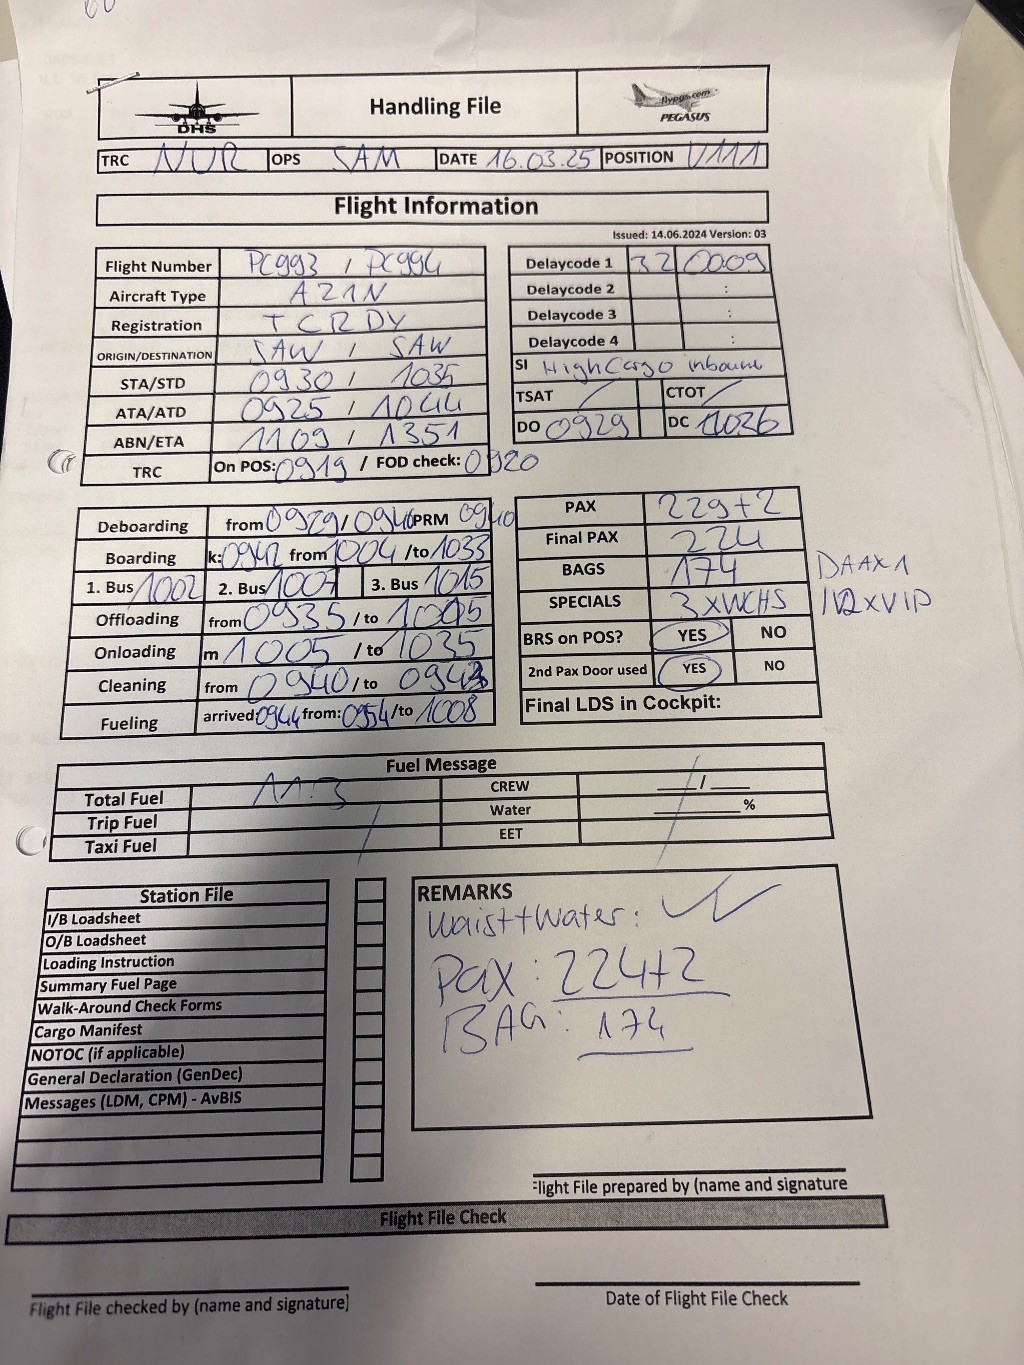 DHS
Handling File
flypgs.com
PEGASUS
TRC NUR OPS SAM DATE 16.03.25 POSITION V111
Flight Information
Issued: 14.06.2024 Version: 03
Flight Number PC993 / PC994
Aircraft Type A21N
Registration TCRDY
ORIGIN/DESTINATION SAW / SAW
STA/STD 0930 / 1035
ATA/ATD 0925 / 1044
ABN/ETA 1109 / 1351
TRC On POS: 0919 / FOD check: 0920
Delaycode 1 32 0009
Delaycode 2 :
Delaycode 3 :
Delaycode 4 :
SI High Cargo inbound
TSAT / CTOT /
DO 0929 DC 1026
Deboarding from 0929 / 0940 PRM 0940
Boarding k: 0942 from 1004 /to 1033
1. Bus 1002 2. Bus 1007 3. Bus 1015
Offloading from 0935 / to 1005
Onloading m 1005 / to 1035
Cleaning from 0940 / to 0943
Fueling arrived: 0944 from: 0954 /to 1008
PAX 229+2
Final PAX 224
BAGS 174 DAAX1
SPECIALS 3xWCHS /12xVIP
BRS on POS? YES NO
2nd Pax Door used YES NO
Final LDS in Cockpit:
Fuel Message
Total Fuel 11.3 CREW ___/___
Trip Fuel Water ______%
Taxi Fuel EET
Station File
I/B Loadsheet
O/B Loadsheet
Loading Instruction
Summary Fuel Page
Walk-Around Check Forms
Cargo Manifest
NOTOC (if applicable)
General Declaration (GenDec)
Messages (LDM, CPM) - AvBIS
REMARKS
Waist+Water: ✓
Pax: 224+2
BAG: 174
Flight File prepared by (name and signature
Flight File Check
Flight File checked by (name and signature)
Date of Flight File Check